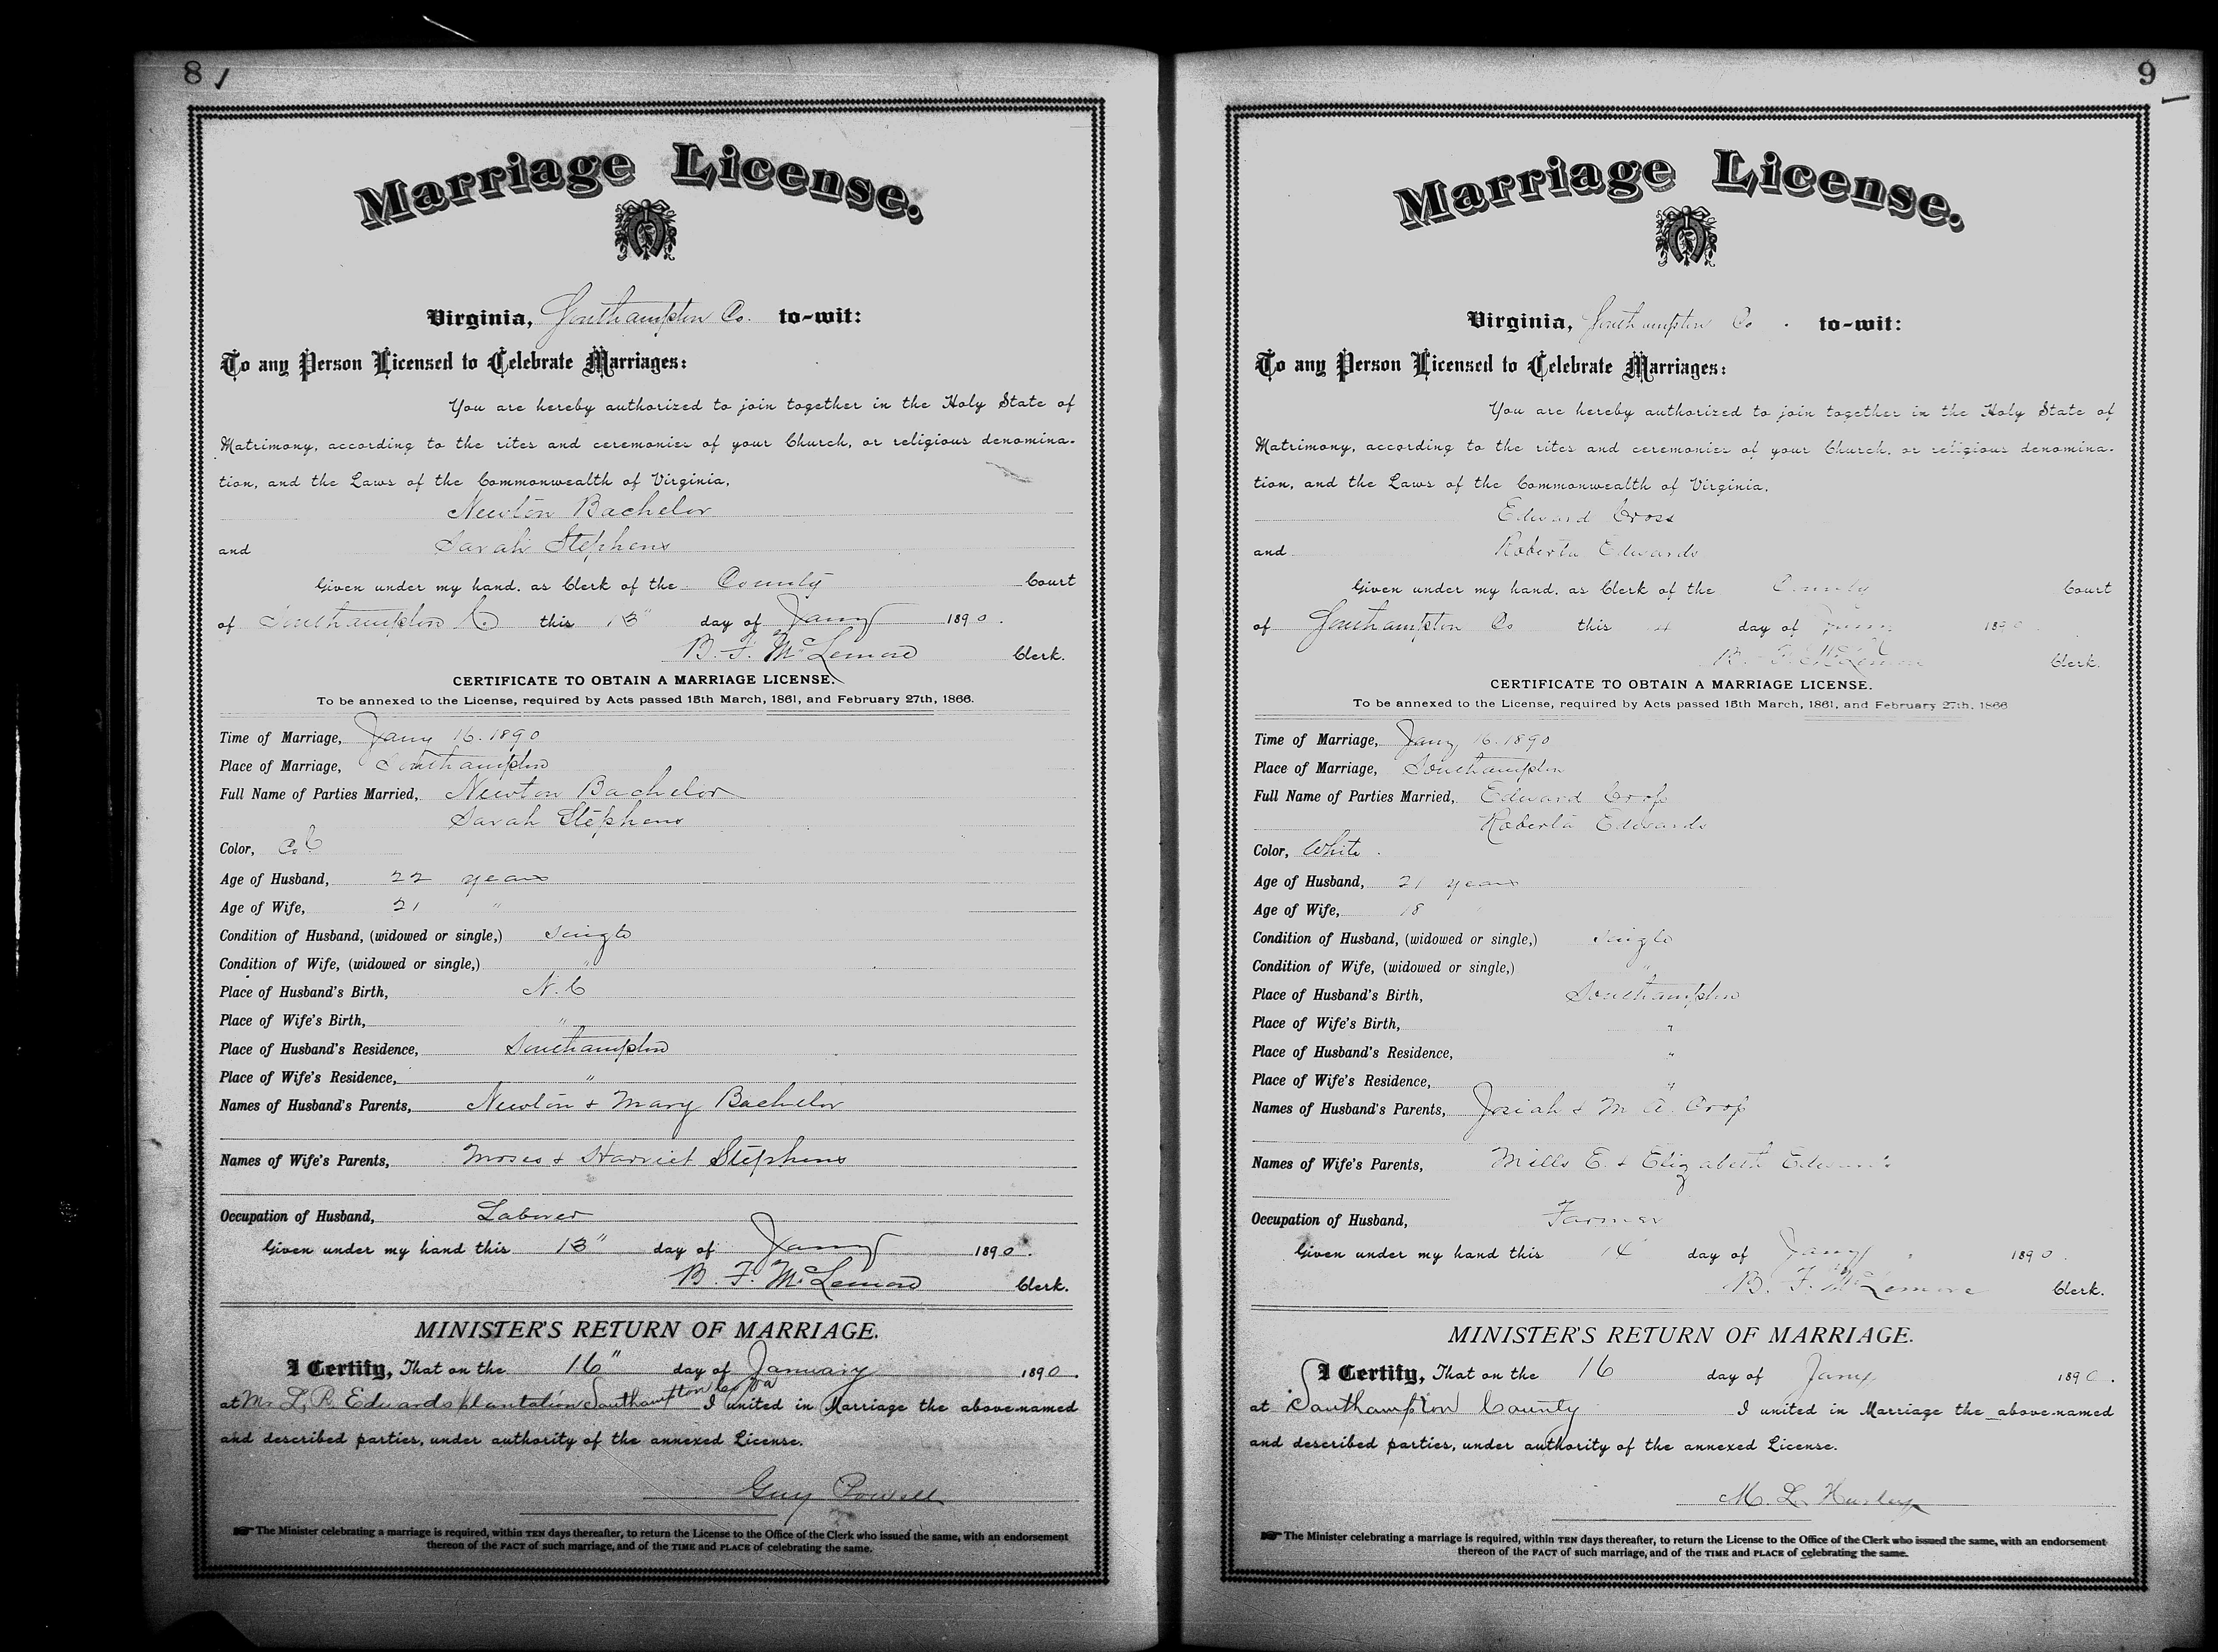 8
Marriage License.
Virginia, Southampton Co. to-wit:
To any Person Licensed to Celebrate Marriages:
You are hereby authorized to join together in the Holy State of
Matrimony, according to the rites and ceremonies of your Church, or religious denomina-
tion, and the Laws of the Commonwealth of Virginia,
Newton Bachelor
and Sarah Stephens
Given under my hand, as Clerk of the County Court
of Southampton Co this 13" day of Jany 1890.
B. F. McLemore Clerk.
CERTIFICATE TO OBTAIN A MARRIAGE LICENSE.
To be annexed to the License, required by Acts passed 15th March, 1861, and February 27th, 1866.
Time of Marriage, Jany 16. 1890
Place of Marriage, Southampton
Full Name of Parties Married, Newton Bachelor
Sarah Stephens
Color, Col
Age of Husband, 22 years
Age of Wife, 21 "
Condition of Husband, (widowed or single,) Single
Condition of Wife, (widowed or single,) "
Place of Husband's Birth, N. C
Place of Wife's Birth, "
Place of Husband's Residence, Southampton
Place of Wife's Residence, "
Names of Husband's Parents, Newton & Mary Bachelor
Names of Wife's Parents, Moses & Harriet Stephens
Occupation of Husband, Laborer
Given under my hand this 13" day of Jany 1890.
B. F. McLemore Clerk.
MINISTER'S RETURN OF MARRIAGE.
I Certify, That on the 16" day of January 1890.
at Mr. L. R. Edwards plantation Southampton Co Va I united in Marriage the above-named
and described parties, under authority of the annexed License.
Guy Powell
The Minister celebrating a marriage is required, within TEN days thereafter, to return the License to the Office of the Clerk who issued the same, with an endorsement
thereon of the FACT of such marriage, and of the TIME and PLACE of celebrating the same.
9
Marriage License.
Virginia, Southampton Co. to-wit:
To any Person Licensed to Celebrate Marriages:
You are hereby authorized to join together in the Holy State of
Matrimony, according to the rites and ceremonies of your Church, or religious denomina-
tion, and the Laws of the Commonwealth of Virginia,
Edward Cross
and Roberta Edwards
Given under my hand, as Clerk of the County Court
of Southampton Co this 14 day of Jany 1890.
B. F. McLemore Clerk.
CERTIFICATE TO OBTAIN A MARRIAGE LICENSE.
To be annexed to the License, required by Acts passed 15th March, 1861, and February 27th, 1866
Time of Marriage, Jany 16. 1890
Place of Marriage, Southampton
Full Name of Parties Married, Edward Cross
Roberta Edwards
Color, White.
Age of Husband, 21 years
Age of Wife, 18 "
Condition of Husband, (widowed or single,) Single
Condition of Wife, (widowed or single,) "
Place of Husband's Birth, Southampton
Place of Wife's Birth, "
Place of Husband's Residence, "
Place of Wife's Residence, "
Names of Husband's Parents, Josiah & M. A. Cross
Names of Wife's Parents, Mills E. & Elizabeth Edwards
Occupation of Husband, Farmer
Given under my hand this 14" day of Jany 1890.
B. F. McLemore Clerk.
MINISTER'S RETURN OF MARRIAGE.
I Certify, That on the 16 day of Jany 1890.
at Southampton County I united in Marriage the above-named
and described parties, under authority of the annexed License.
M. L.
The Minister celebrating a marriage is required, within TEN days thereafter, to return the License to the Office of the Clerk who issued the same, with an endorsement
thereon of the FACT of such marriage, and of the TIME and PLACE of celebrating the same.